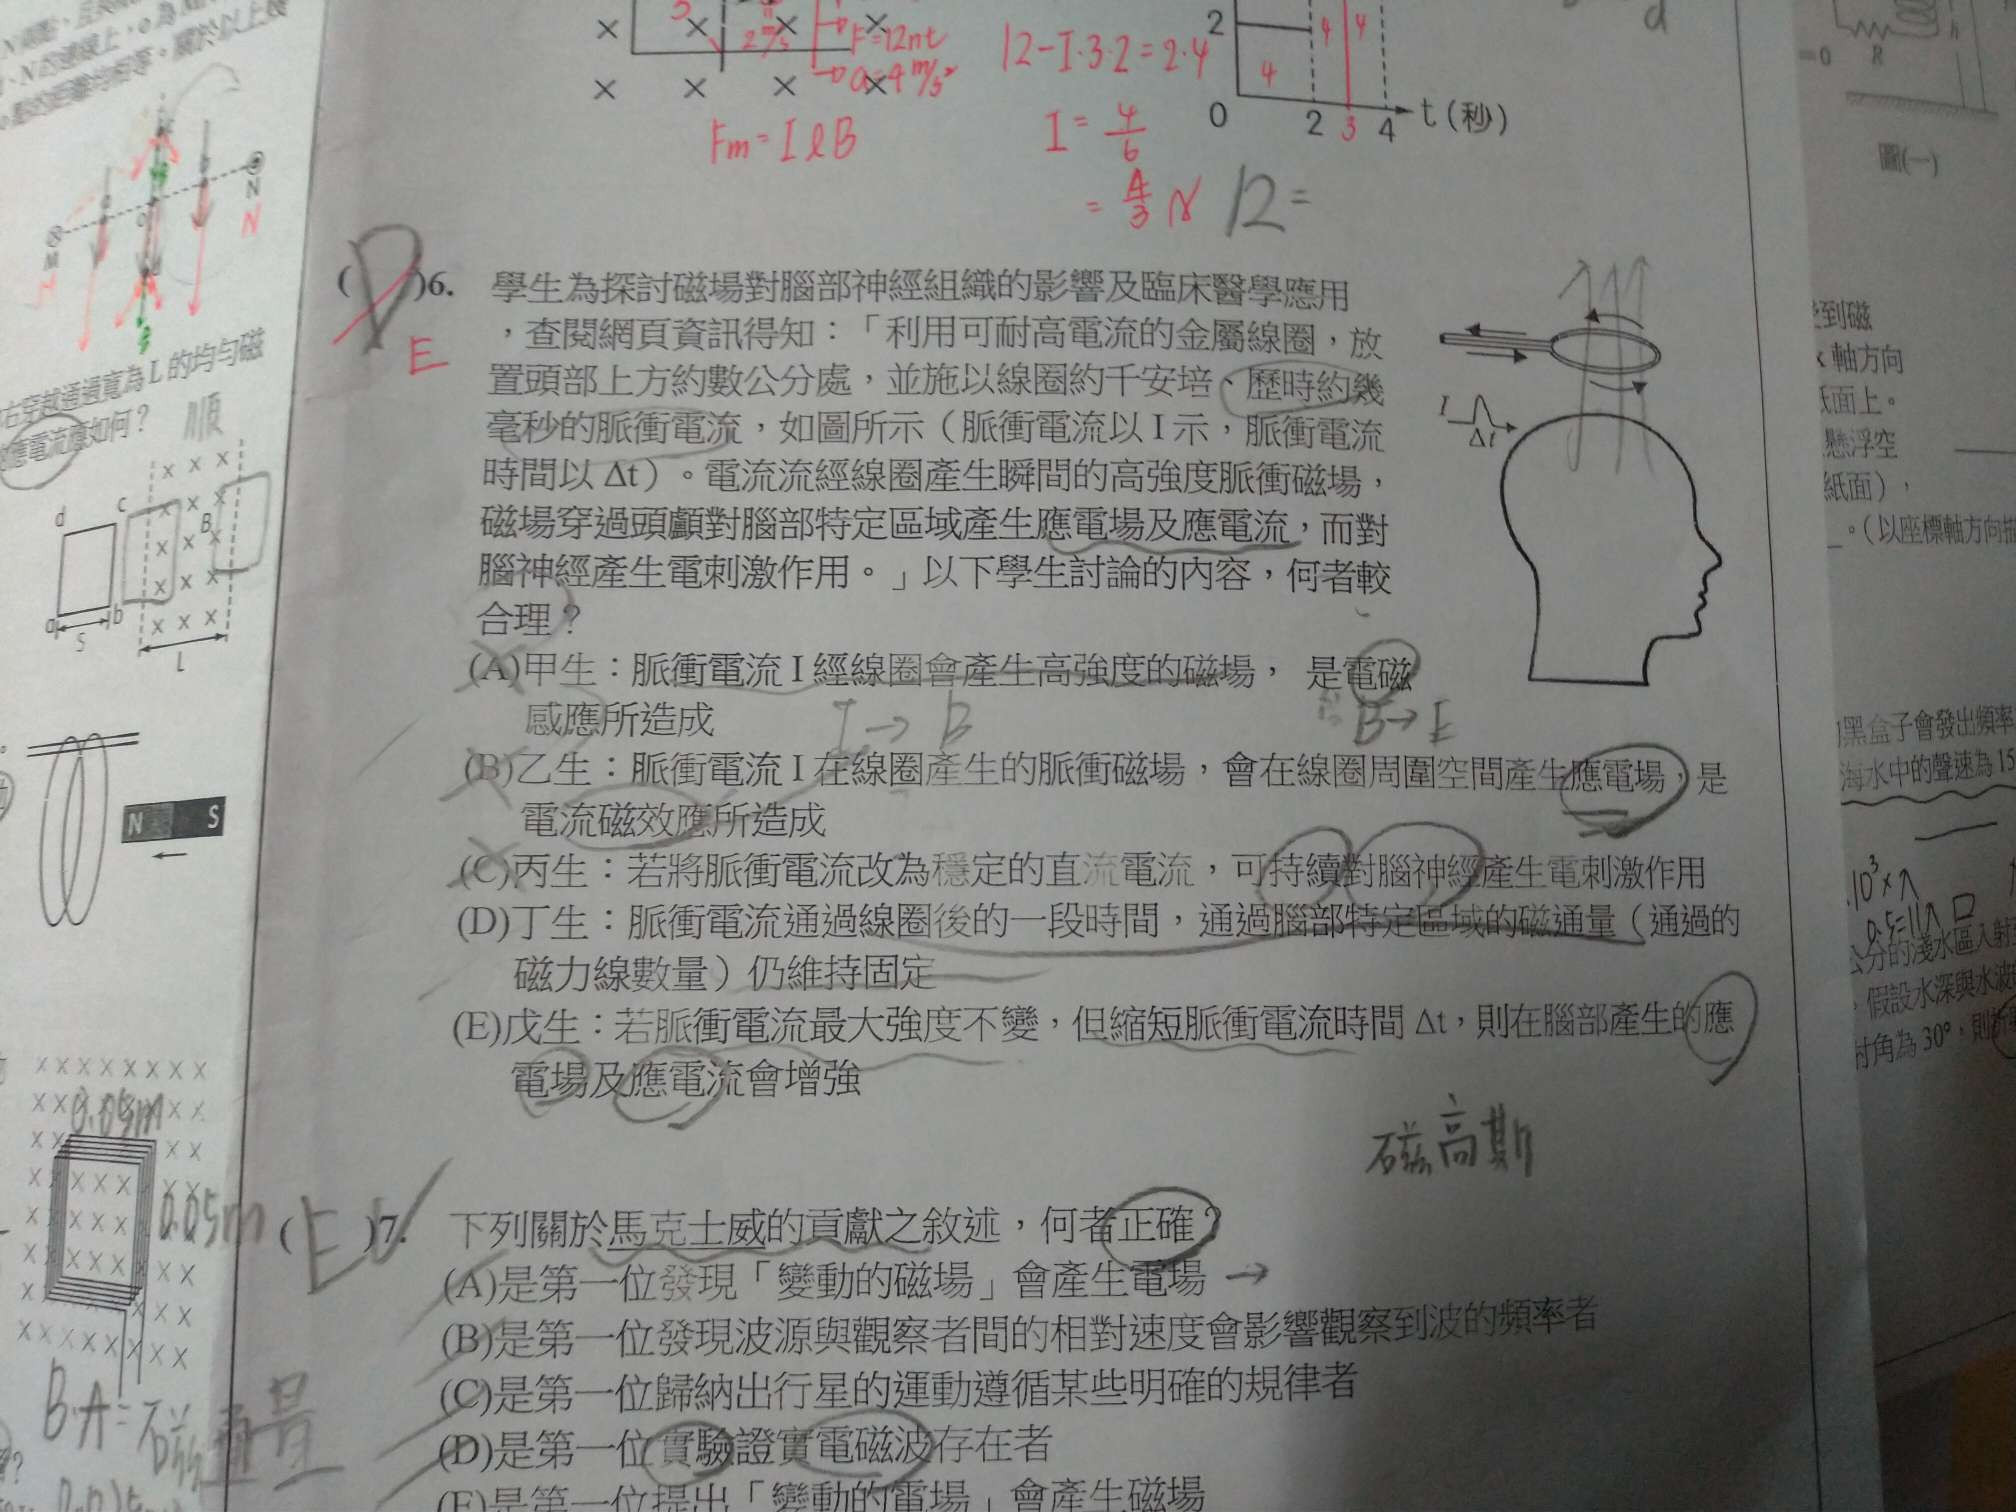 F=12nt
a=4 m/s²
Fm=IlB
12-I·3·2=2·4
2
4
4
4
0
2
3
4
t(秒)
12=
圖(一)
( D )6. 學生為探討磁場對腦部神經組織的影響及臨床醫學應用
E
，查閱網頁資訊得知：「利用可耐高電流的金屬線圈，放
置頭部上方約數公分處，並施以線圈約千安培、歷時約幾
毫秒的脈衝電流，如圖所示（脈衝電流以 I 示，脈衝電流
時間以 Δt）。電流流經線圈產生瞬間的高強度脈衝磁場，
磁場穿過頭顱對腦部特定區域產生應電場及應電流，而對
腦神經產生電刺激作用。」以下學生討論的內容，何者較
合理？
I
Δt
(A)甲生：脈衝電流 I 經線圈會產生高強度的磁場， 是電磁
感應所造成
I → B
B→E
(B)乙生：脈衝電流 I 在線圈產生的脈衝磁場，會在線圈周圍空間產生應電場，是
電流磁效應所造成
(C)丙生：若將脈衝電流改為穩定的直流電流，可持續對腦神經產生電刺激作用
(D)丁生：脈衝電流通過線圈後的一段時間，通過腦部特定區域的磁通量（通過的
磁力線數量）仍維持固定
(E)戊生：若脈衝電流最大強度不變，但縮短脈衝電流時間 Δt，則在腦部產生的應
電場及應電流會增強
磁高斯
( E )7. 下列關於馬克士威的貢獻之敘述，何者正確？
(A)是第一位發現「變動的磁場」會產生電場 →
(B)是第一位發現波源與觀察者間的相對速度會影響觀察到波的頻率者
(C)是第一位歸納出行星的運動遵循某些明確的規律者
(D)是第一位實驗證實電磁波存在者
(E)是第一位提出「變動的電場」會產生磁場
右穿越通過寬為 L 的均勻磁
應電流應如何？
順
d
c
B
a
b
S
L
N S
0.05m
0.05m
B·A=磁通量
到磁
x 軸方向
紙面上。
懸浮空
紙面），
。（以座標軸方向描
黑盒子會發出頻率
海水中的聲速為 15
公分的淺水區入射
，假設水深與水波
射角為 30°，則折